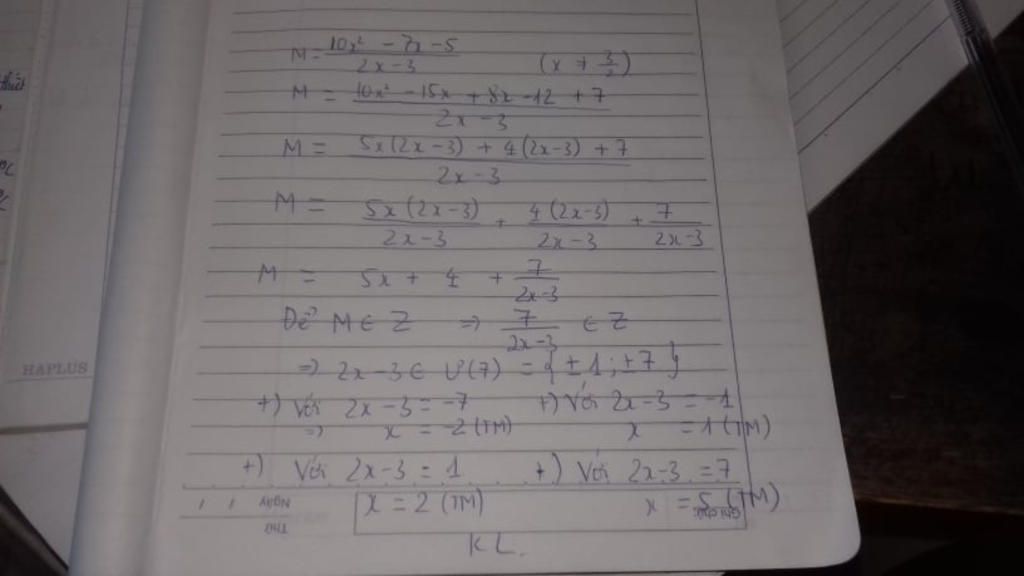 M = \frac{10x² - 7x - 5}{2x - 3} (x ≠ \frac{3}{2})
M = \frac{10x² - 15x + 8x - 12 + 7}{2x - 3}
M = \frac{5x(2x - 3) + 4(2x - 3) + 7}{2x - 3}
M = \frac{5x(2x - 3)}{2x - 3} + \frac{4(2x - 3)}{2x - 3} + \frac{7}{2x - 3}
M = 5x + 4 + \frac{7}{2x - 3}
Để M ∈ Z ⇒ \frac{7}{2x - 3} ∈ Z
⇒ 2x - 3 ∈ Ư(7) = {±1; ±7}
+) Với 2x - 3 = -7 +) Với 2x - 3 = -1
⇒ x = -2 (TM) x = 1 (TM)
+) Với 2x - 3 = 1 +) Với 2x - 3 = 7
x = 2 (TM) x = 5 (TM)
KL.
HAPLUS
Ngày
Thứ